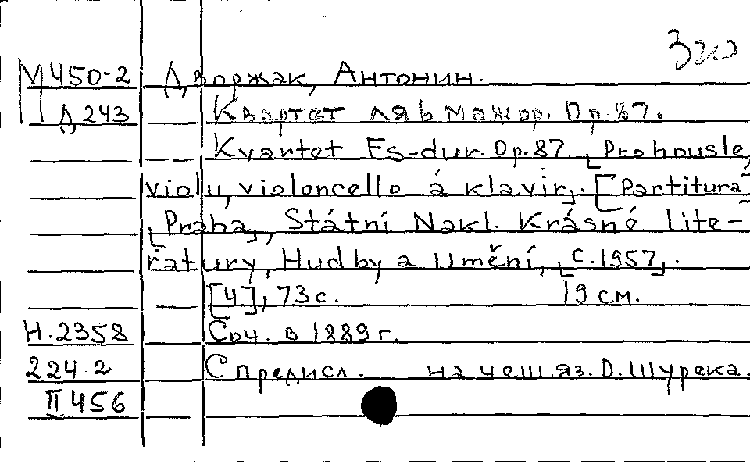 320
М450-2 Дворжак, Антонин.
Д243 Квартет ля b мажор. Op.87.
Kvartet Es-dur. Op.87 [Pro housle,
violu, violoncello a klavír]. [Partitura]
[Praha], Státní Nakl. Krásné lite-
ratury, Hudby a Umění, [c.1957].
[4], 73с. 19 см.
Н.2358 Соч. в 1889 г.
224.2 С предисл. на чеш. яз. О. Шурека.
II 456